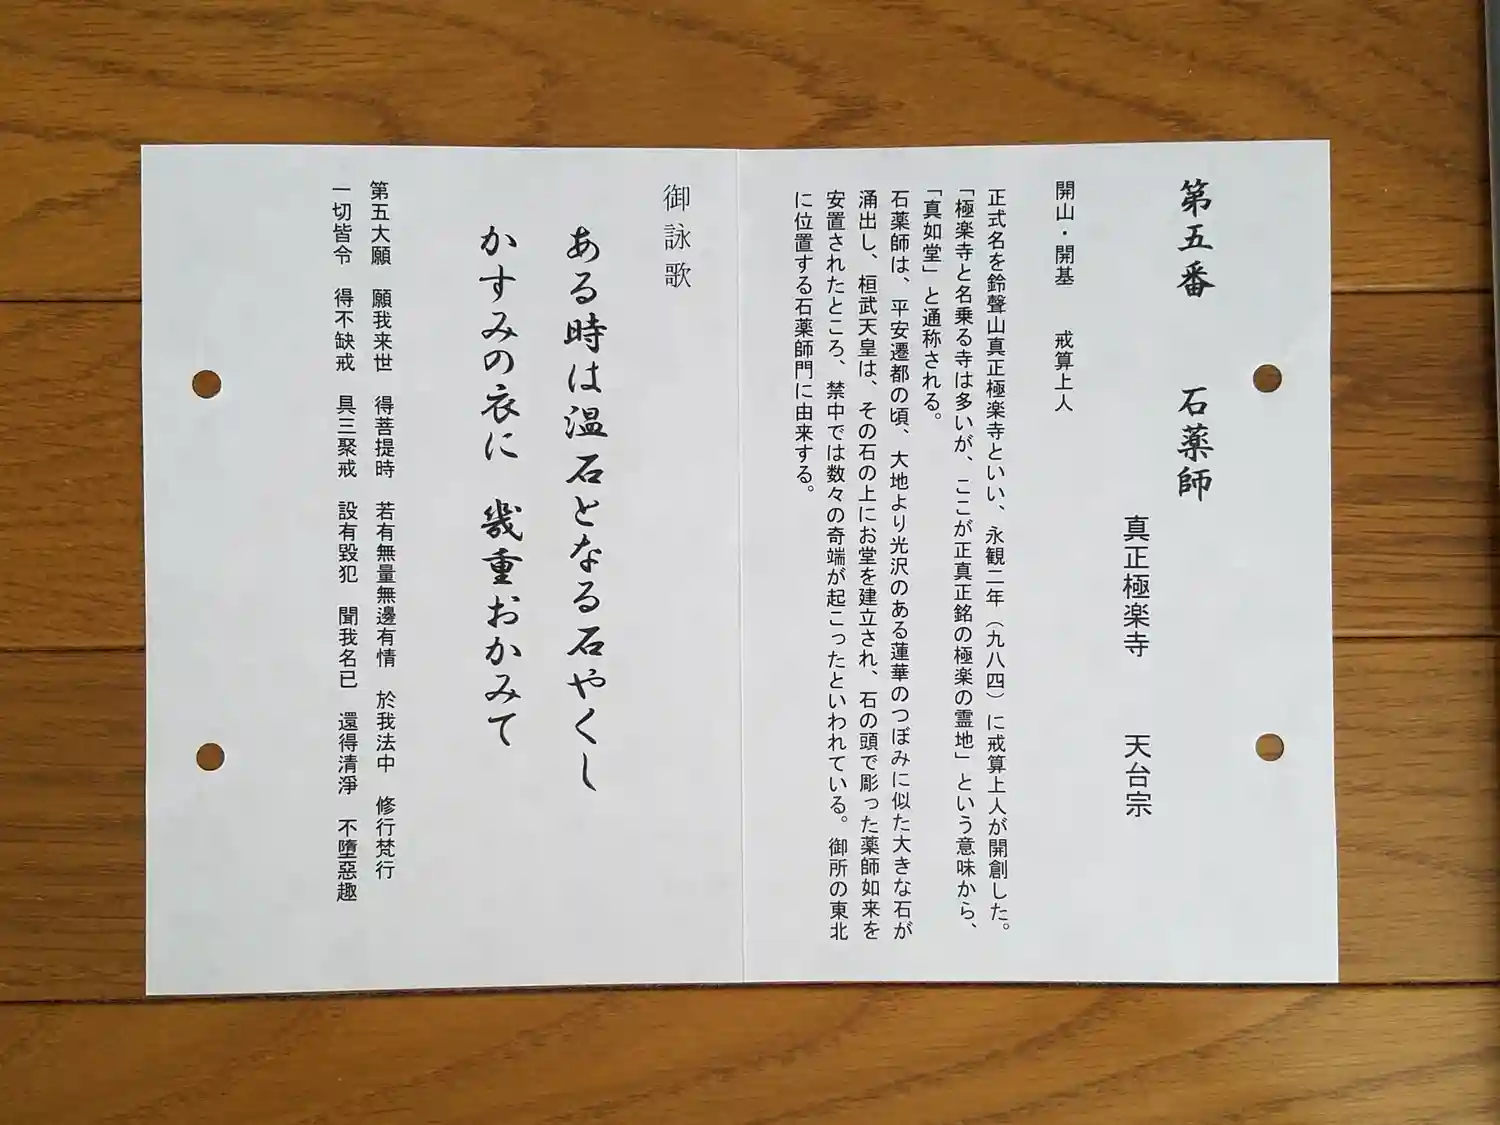 第五番　石薬師
真正極楽寺　天台宗
開山・開基　戒算上人
正式名を鈴聲山真正極楽寺といい、永観二年（九八四）に戒算上人が開創した。
「極楽寺と名乗る寺は多いが、ここが正真正銘の極楽の霊地」という意味から、
「真如堂」と通称される。
石薬師は、平安遷都の頃、大地より光沢のある蓮華のつぼみに似た大きな石が
涌出し、桓武天皇は、その石の上にお堂を建立され、石の頭で彫った薬師如来を
安置されたところ、禁中では数々の奇端が起こったといわれている。御所の東北
に位置する石薬師門に由来する。
御詠歌
ある時は温石となる石やくし
かすみの衣に　幾重おかみて
第五大願　願我来世　得菩提時　若有無量無邊有情　於我法中　修行梵行
一切皆令　得不缺戒　具三聚戒　設有毀犯　聞我名已　還得清淨　不墮惡趣